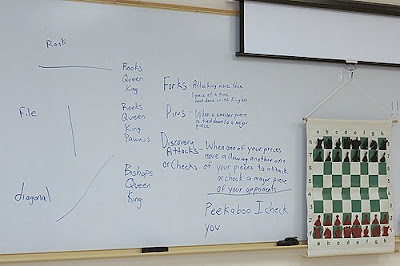 Rank
Rooks
Queen
King
File
Rooks
Queen
King
Pawns
diagonal
Bishops
Queen
King
Forks - Attacking more than
1 piece at a time
best done with Knights
Pins - When a smaller piece
is tied down to a major
piece
Discovery Attacks - When one of your pieces
move allowing another one
or Checks of your pieces to attack
or check a major piece
of your opponents
Peekaboo I check
you
a b c d e f g h
a b c d e f g h